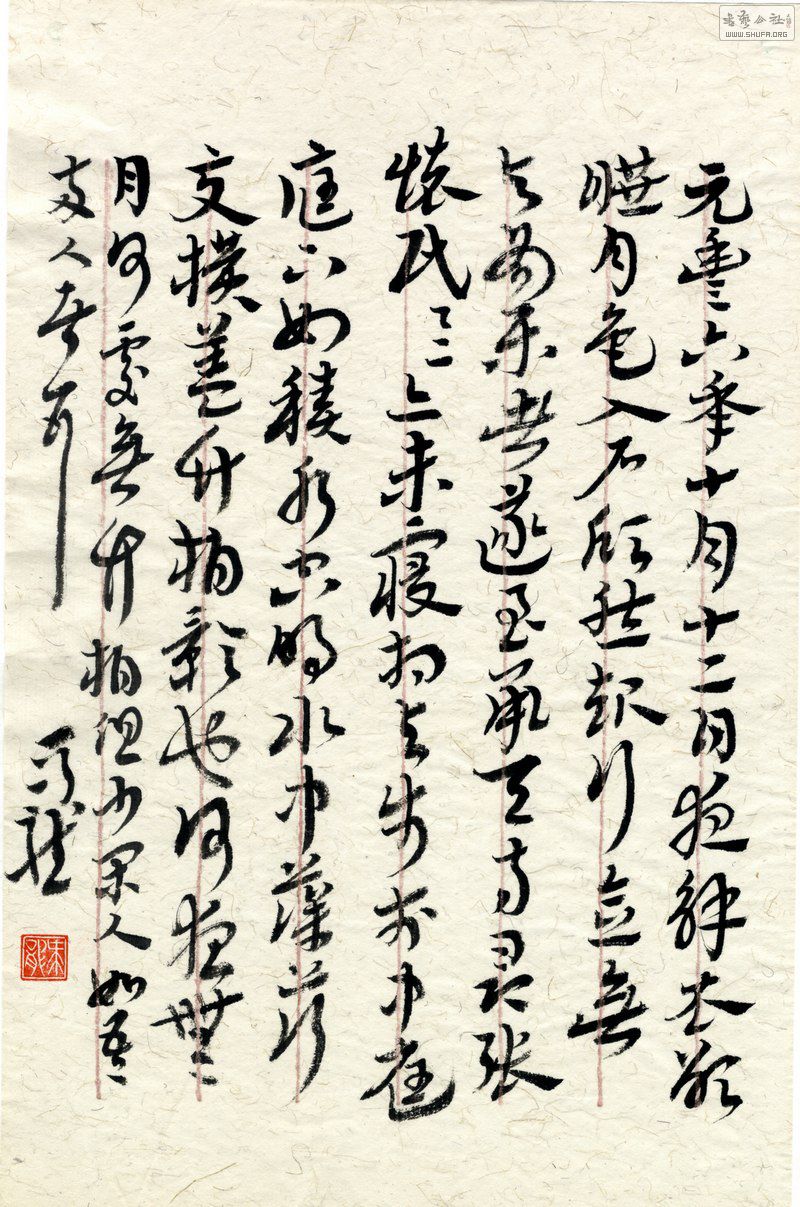 元豐六年十月十二日夜解衣欲
睡月色入户欣然起行念無
与为樂者遂至承天寺尋張
懷民亦未寝相与步於中庭
庭下如積水空明水中藻荇
交横蓋竹柏影也何夜無
月何處無竹柏但少閑人如吾
两人者耳
書藝公社
WWW.SHUFA.ORG